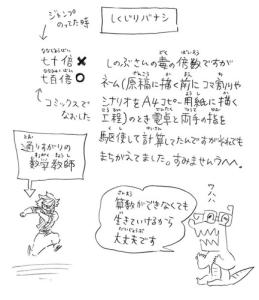 しくじりバナシ
ジャンプのってた時
七十倍 ✖
七百倍 ○
コミックスでなおした
しのぶさんの毒の倍数ですが
ネーム(原稿に描く前にコマ割りや
シナリオをA4コピー用紙に描く
工程)のとき電卓と両手の指を
駆使して計算してたんですがそれでも
まちがえてました。すみませんうへへ。
通りすがりの
数学教師
算数ができなくても
生きていけるから
大丈夫です
ワハハ